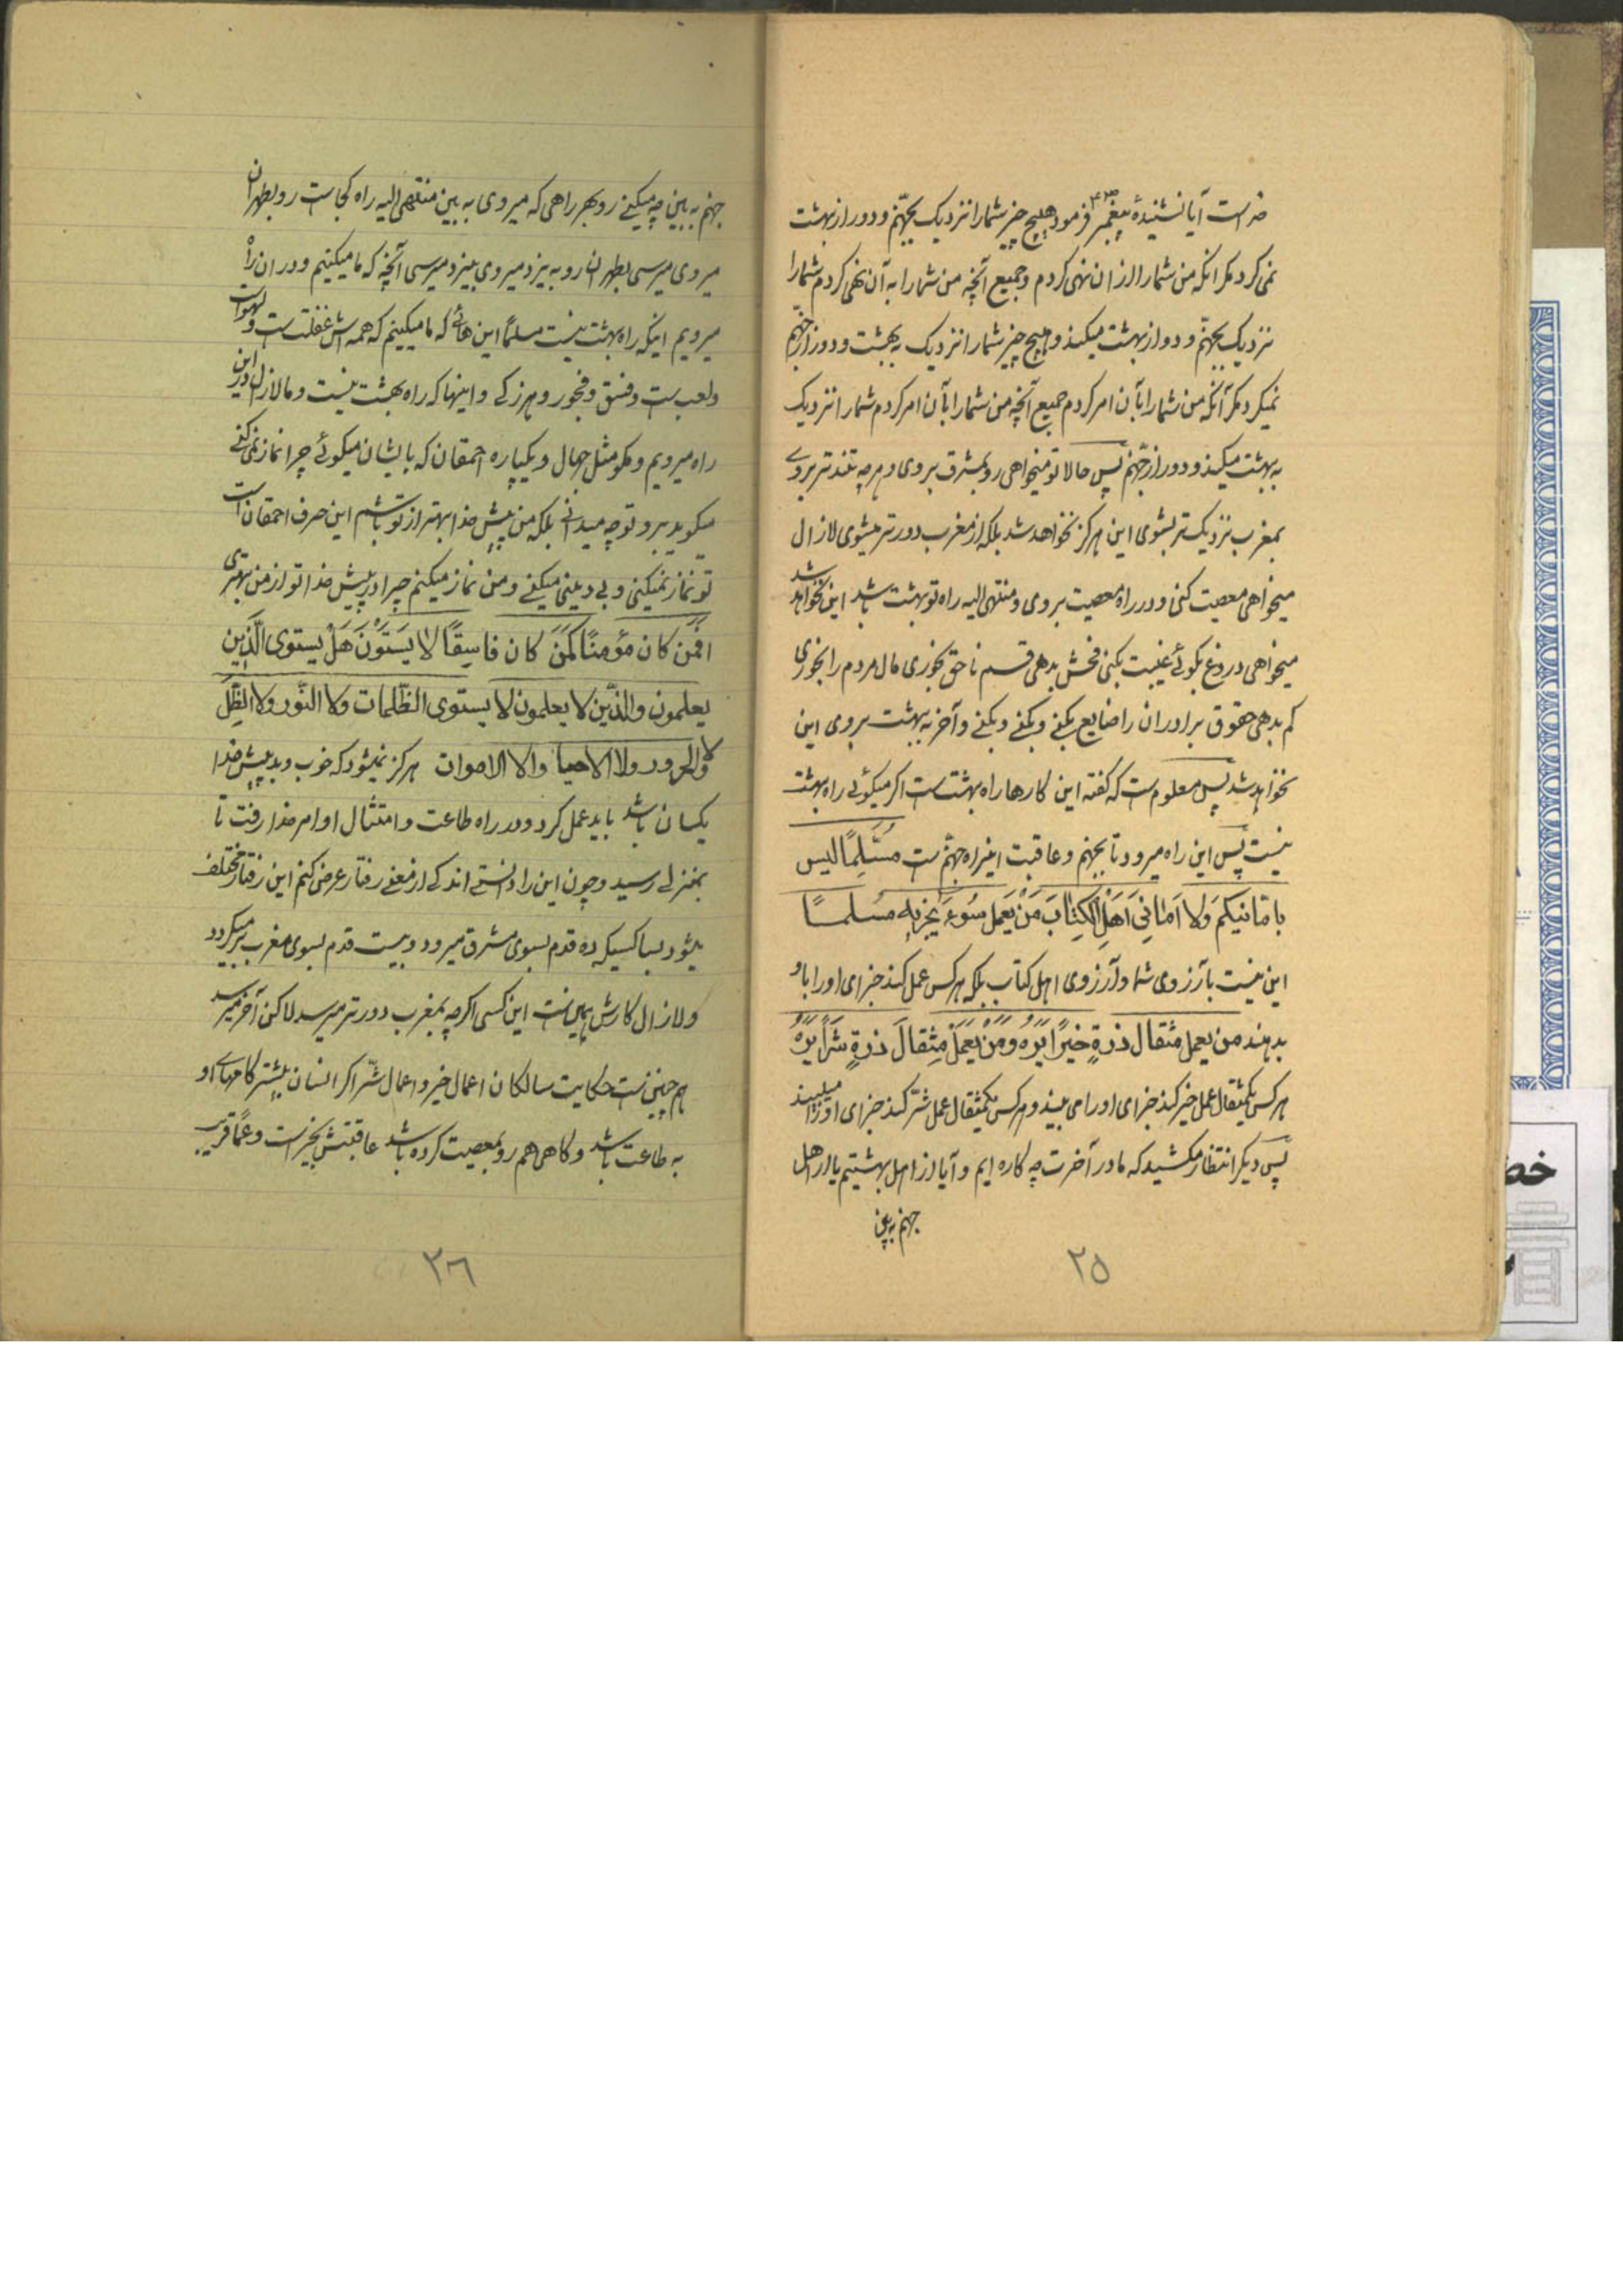 خداست آیا نشنیدهٔ پیغمبر فرمود هیچ چیز شما را نزدیک بجهنّم و دور از بهشت
نمی کرد مکر آنکه من شما را از ان نهی کردم و جمیع آنچه من شما را به آن نهی کردم شما را
نزدیک بجهنّم و دور از بهشت میکند و هیچ چیز شما را نزدیک به بهشت و دور از جهنّم
نمیکرد مکر آنکه من شما را بآن امر کردم جمیع آنچه من شما را بآن امر کردم شما را نزدیک
به بهشت میکند و دور از جهنّم پس حالا تو میخواهی رو بمشرق بروی و هر چه تندتر بروی
بمغرب نزدیک تر بشوی این هرکز نخواهد شد بلکه از مغرب دورتر میشوی لازال
میخواهی معصیت کنی و در راه معصیت بروی و منتهی الیه راه تو بهشت باشد این نخواهد شد
میخواهی دروغ بکوئی غیبت بکنی فحش بدهی قسم ناحق بخوری مال مردم را بخوری
کم بدهی حقوق برادران را ضایع بکنی و بکنی و بکنی و آخر به بهشت بروی این
نخواهد شد پس معلوم است که کفته این کارها راه بهشت است اکر میکوئی راه بهشت
نیست پس این راه میرود تا بجهنم و عاقبت اینراه جهنّم است مُسَّلِمًا لیس
بامانیکم وَلا اَمٰانِی اَهلِ الکِتٰابَ مَنْ یَعمل سُوءَ یُجزَ بِه مسُلماً
این نیست بآرزوی شما و آرزوی اهل کتاب بلکه هر کس عمل کند جزای او را باو
بدهند من یعمل مثقال ذرةٍ خیرًا یَرَهُ وَ مَنْ یَعمَلْ مِثقالَ ذرةٍ شَرّاً یَرَهُ
هر کس یکمثقال عمل خیر کند جزای او را می بیند و هر کس یکمثقال عمل شرّ کند جزای او را میبیند
پس دیکر انتظار مکشید که ما در آخرت چه کاره ایم و آیا از اهل بهشتیم یا از اهل
جهنم به بین
۲۵
جهنم به بین چه میکنی رو بهر راهی که میروی به بین منتهی الیه راه کجاست رو بطهران
میروی میرسی بطهران رو به یزد میروی بیزد میرسی آنچه که ما میکنیم و در ان راه
میرویم اینکه راه بهشت نیست مسلماً این هائی که ما میکنیم که همه اش غفلت است و لهو است
و لعب است و فسق و فجور و هرزکی و اینها که راه بهشت نیست و ما لازال در این
راه میرویم و مکو مثل جهال و یکپاره احمقان که بایشان میکوئی چرا نماز نمی کنی
میکوید برو تو چه میدانی بلکه من پیش خدا بهتر از تو باشم این حرف احمقان است
تو نماز نمیکنی و بی دینی میکنی و من نماز میکنم چرا در پیش خدا تو از من بهتری
افمن کان مؤمنًا کمَنَ کان فاسِقًا لا یَستَوُنَ هَلْ یستوی الّذین
یعلمون والذّین لا یعلمون لا یستوی الظّلمات ولا النّور ولا الظّل
ولا الحرور ولا الاحیا والا الاموات هرکز نمیشود که خوب و بد پیش خدا
یکسان باشد باید عمل کرد و در راه طاعت و امتثال اوامر خدا رفت تا
بمنزلی رسید و چون این را دانستی اندکی از معنی رفتار عرض کنم این رفتار مختلف
میشود بسا کسیکه ده قدم بسوی مشرق میرود و بیست قدم بسوی مغرب بر میکردد
و لازال کارش همین است این کسی اکرچه بمغرب دورتر میرسد لاکن آخر میرسد
هم چنین است حکایت سالکان اعمال خیر و اعمال شّر اکر انسان بیشتر کامهای او
به طاعت باشد و کاهی هم رو بمعصیت کرده باشد عاقبتش بخیر است و عمّا قریب
۲۶